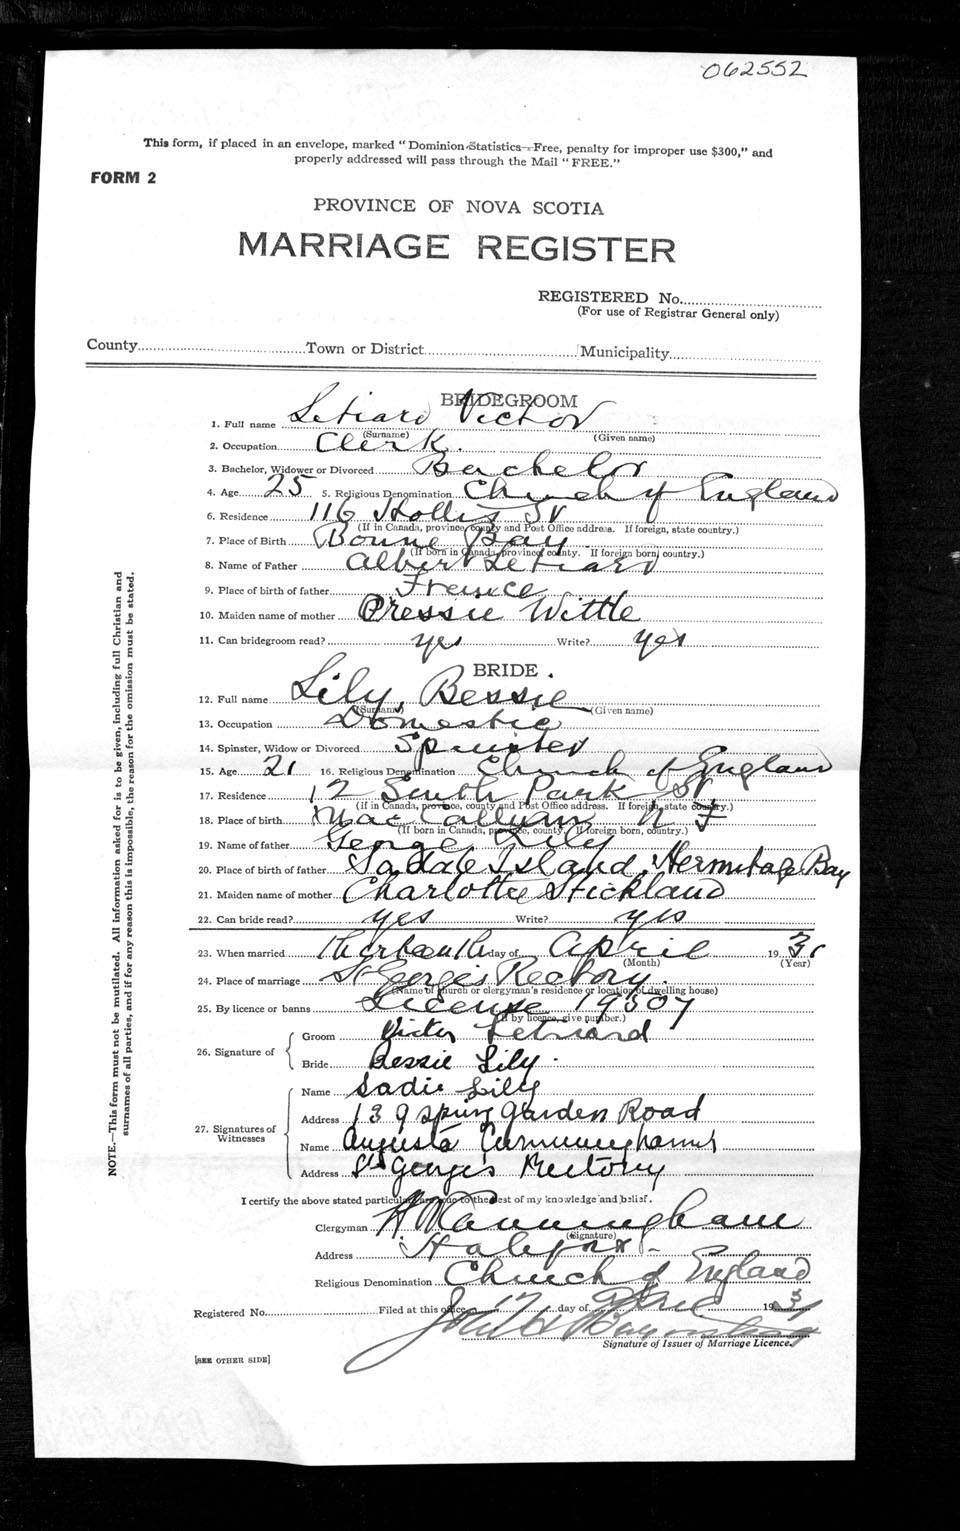 062552
This form, if placed in an envelope, marked "Dominion Statistics—Free, penalty for improper use $300," and
properly addressed will pass through the Mail "FREE."
FORM 2
PROVINCE OF NOVA SCOTIA
MARRIAGE REGISTER
REGISTERED No.
(For use of Registrar General only)
County Town or District Municipality
BRIDEGROOM
1. Full name Letiard Victor
(Surname) (Given name)
2. Occupation Clerk.
3. Bachelor, Widower or Divorced Bachelor
4. Age 25 5. Religious Denomination Church of England
6. Residence 116 Hollis St
(If in Canada, province, county and Post Office address. If foreign, state country.)
7. Place of Birth Bonne Bay
(If born in Canada, province, county. If foreign born, country.)
8. Name of Father Albert Letiard
9. Place of birth of father France
10. Maiden name of mother Pressie Wittle
11. Can bridegroom read? yes Write? yes
BRIDE.
12. Full name Lily, Bessie
(Surname) (Given name)
13. Occupation Domestic
14. Spinster, Widow or Divorced Spinster
15. Age 21 16. Religious Denomination Church of England
17. Residence 12 South Park St
(If in Canada, province, county and Post Office address. If foreign, state country.)
18. Place of birth MacCallum N F
(If born in Canada, province, county. If foreign born, country.)
19. Name of father George Lily
20. Place of birth of father Island, Hermitage Bay
21. Maiden name of mother Charlotte Stickland
22. Can bride read? yes Write? yes
23. When married day of April 1931
(Month) (Year)
24. Place of marriage St Georges Rectory
(Name of church or clergyman's residence or location of dwelling house)
25. By licence or banns License 19307
(If by licence, give number.)
26. Signature of
Groom Victor Letiard
Bride Bessie Lily.
27. Signatures of
Witnesses
Name Sadie Lily
Address 139 Spring Garden Road
Name Augusta Cunningham
Address St Georges Rectory
I certify the above stated particulars are true to the best of my knowledge and belief.
Clergyman H Cunningham
(Signature)
Address Halifax
Religious Denomination Church of England
Registered No. Filed at this office 17 day of April 1931
Signature of Issuer of Marriage Licence.
[SEE OTHER SIDE]
NOTE.—This form must not be mutilated. All information asked for is to be given, including full Christian and
surnames of all parties, and if for any reason this is impossible, the reason for the omission must be stated.